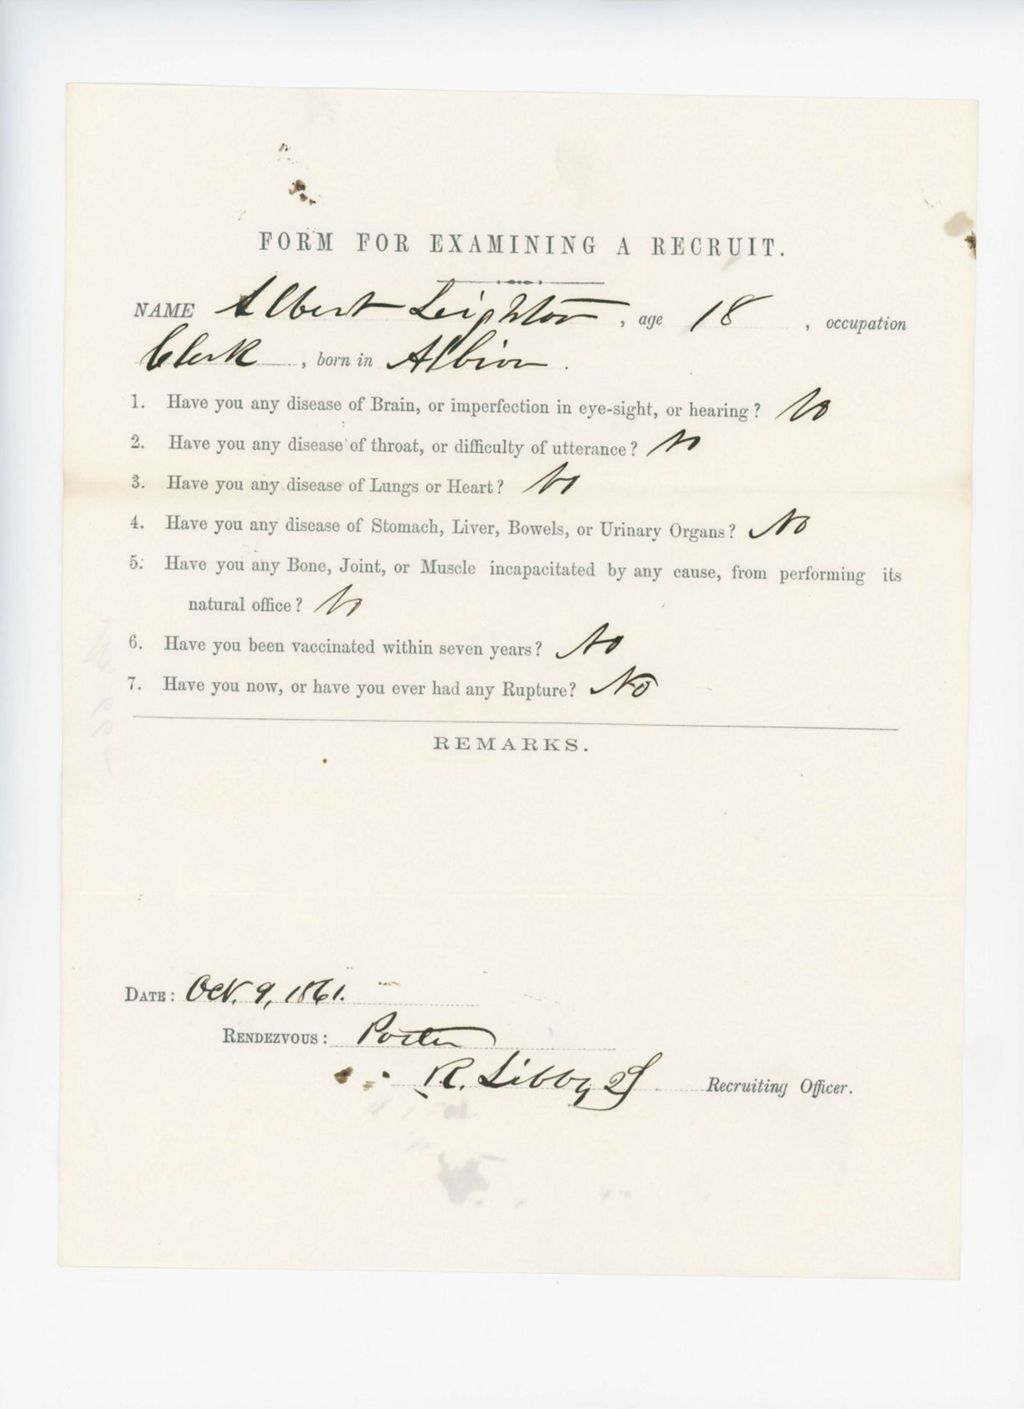 FORM FOR EXAMINING A RECRUIT.
NAME Albert Leighton, age 18, occupation
Clerk, born in Albion.
1. Have you any disease of Brain, or imperfection in eye-sight, or hearing? No
2. Have you any disease of throat, or difficulty of utterance? No
3. Have you any disease of Lungs or Heart? No
4. Have you any disease of Stomach, Liver, Bowels, or Urinary Organs? No
5. Have you any Bone, Joint, or Muscle incapacitated by any cause, from performing its
natural office? No
6. Have you been vaccinated within seven years? No
7. Have you now, or have you ever had any Rupture? No
REMARKS.
DATE: Oct. 9, 1861.
RENDEZVOUS: Porter
R. Libby 2d Recruiting Officer.